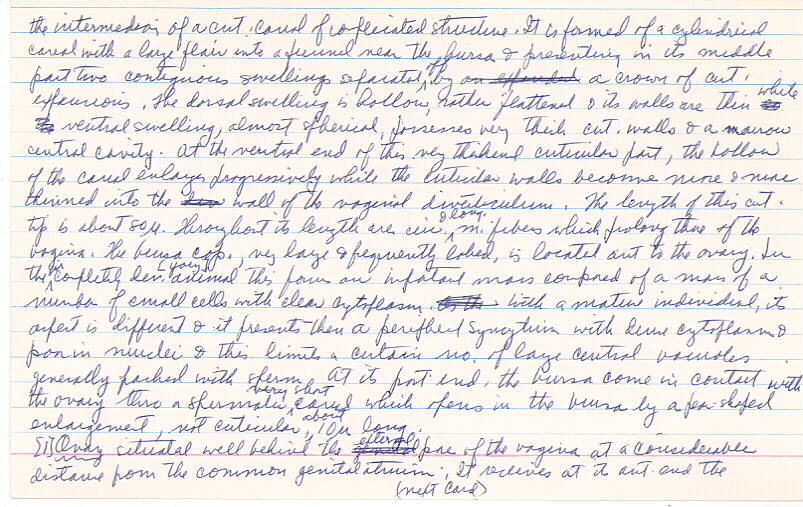 the intermediary of a cut. canal of complicated structure. It is formed of a cylindrical
canal with a large flair into a funnel near the bursa & presenting in its middle
part two contiguous swellings separated by an expanded a crown of cut.
expansions. The dorsal swelling is hollow, rather flattened & its walls are thin while
ventral swelling, almost spherical, possesses very thick cut. walls & a narrow
central cavity. At the ventral end of this very thickened cuticular part, the hollow
of the canal enlarges progressively while the cuticular walls become more & more
thinned into the wall of the vaginal diverticulum. The length of this cut.
tip is about 80µ. Throughout its length are circ. & long. m. fibers which prolong those of the
vagina. The bursa cop., very large & frequently lobed, is located ant. to the ovary. In
the completely dev. (young) animal this forms an important mass composed of a mass of a
number of small cells with clear cytoplasm. With a mature individual, its
aspect is different & it presents then a peripheral syncytium with dense cytoplasm &
nuclei & this limits a certain no. of large central vacuoles
generally packed with sperm. At its post. end, the bursa come in contact with
the ovary thro a spermatic very short canal which opens in the bursa by a pear-shaped
enlargement, not cuticular, about 10µ long.
[¶] Ovary situated well behind the genital external pore of the vagina at a considerable
distance from the common genital atrium; It receives at its ant. end the
(next card)